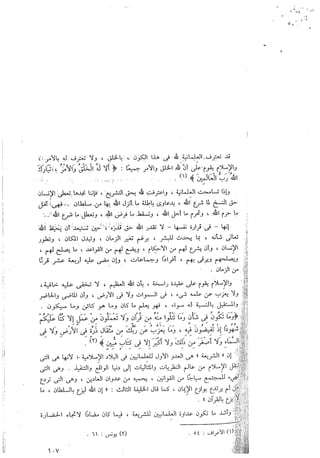 قد تعترف العلمانية لله فى هذا الكون ، بالخلق ، ولا تعترف له بالأمر ،
والإسلام يقوم على أن لله الخلق والأمر جميعًا : ﴿ أَلَا لَهُ الْخَلْقُ وَالْأَمْرُ ، تَبَارَكَ
اللهُ رَبُّ الْعَالَمِينَ ﴾ (١) .
وإذا تسامحت العلمانية ، واعترفت لله بحق التشريع ، فإننا نجدها تعطى الإنسان
حق النسخ لما شرع الله ، بدعاوى باطلة ما أنزل الله بها من سلطان .. فهى تحل
ما حرم الله ، وتحرم ما أحل الله ، وتسقط ما فرض الله ، وتعطل ما شرع الله ..
إنها - فى قرارة نفسها - لا تقدر الله حق قدره ، حين تستبعد أن يحيط الله
تعالى شأنه ، بما يحدث للبشر ، برغم تغير الزمان ، وتبدل المكان ، وتطور
الإنسان ، وأن يشرع لهم من الأحكام ، ويضع لهم من القواعد ، ما يصلح لهم ،
ويصلحهم ويرقى بهم ، أفرادًا وجماعات ، وإن مضى عليه أربعة عشر قرنًا
من الزمان .
والإسلام يقوم على عقيدة راسخة ، بأن الله العظيم ، لا تخفى عليه خافية ،
ولا يعزب عن علمه شىء ، فى السموات ولا فى الأرض ، وأن الماضى والحاضر
والمستقبل بالنسبة له سواء ، فهو يعلم ما كان وما هو كائن وما سيكون .
﴿ وَمَا تَكُونُ فِي شَأْنٍ وَمَا تَتْلُو مِنْهُ مِنْ قُرْآنٍ وَلَا تَعْمَلُونَ مِنْ عَمَلٍ إِلَّا كُنَّا عَلَيْكُمْ
شُهُودًا إِذْ تُفِيضُونَ فِيهِ ، وَمَا يَعْزُبُ عَنْ رَبِّكَ مِنْ مِثْقَالِ ذَرَّةٍ فِي الْأَرْضِ وَلَا فِي
السَّمَاءِ وَلَا أَصْغَرَ مِنْ ذَلِكَ وَلَا أَكْبَرَ إِلَّا فِي كِتَابٍ مُبِينٍ ﴾ (٢) .
إن « الشريعة » هى العدو الأول للعلمانيين فى البلاد الإسلامية ؛ لأنها هى التى
تنقل الإسلام من عالم النظريات والمثاليات إلى دنيا الواقع والتنفيذ . وهى التى
تهيئ للمجتمع سياجًا من القوانين ، يحميه من عدوان العادين ، وهى التى تردع
من لم يرتدع بوازع الإيمان ، كما قال الخليفة الثالث : « إن الله ليزع بالسلطان ، ما
لا يزع بالقرآن » .
وأشد ما تكون عداوة العلمانيين للشريعة ، فيما كان مضادًا لاتجاه الحضارة
(١) الأعراف : ٥٤ . (٢) يونس : ٦١ .
٦٠٧